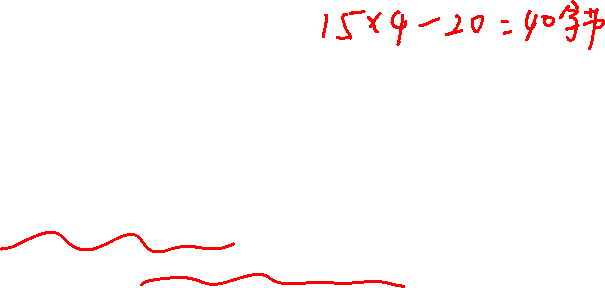 15×4-20=40字节